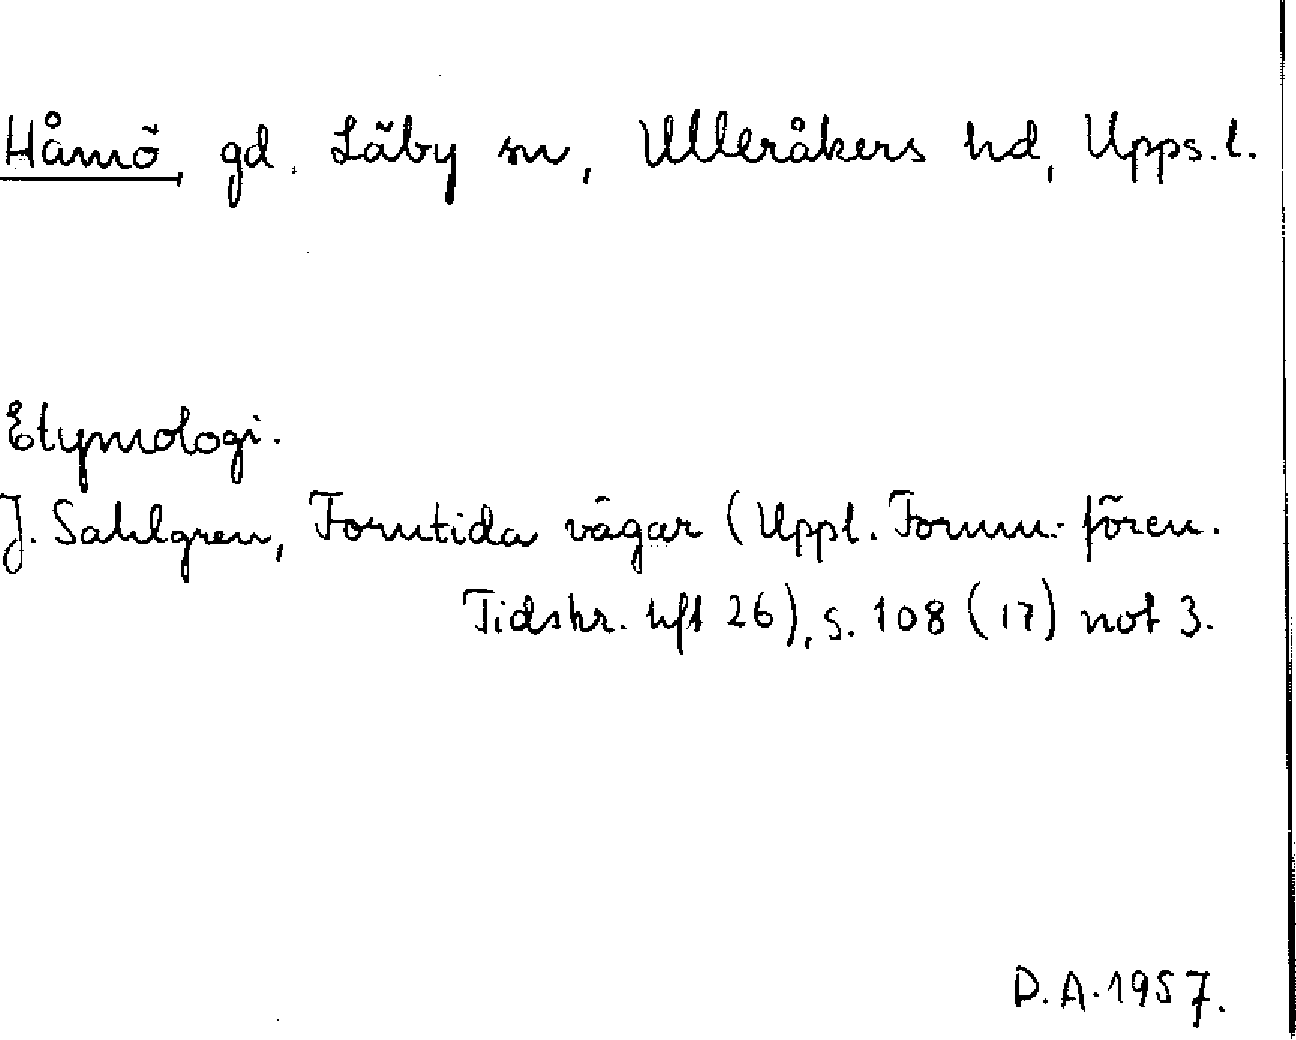 Håmö, gd. Läby sn, Ulleråkers hd, Upps. l.
Etymologi.
J. Sahlgren, Forntida vägar (Uppl. Fornm. fören.
Tidskr. hft 26), s. 108 (17) not 3.
D.A. 1957.